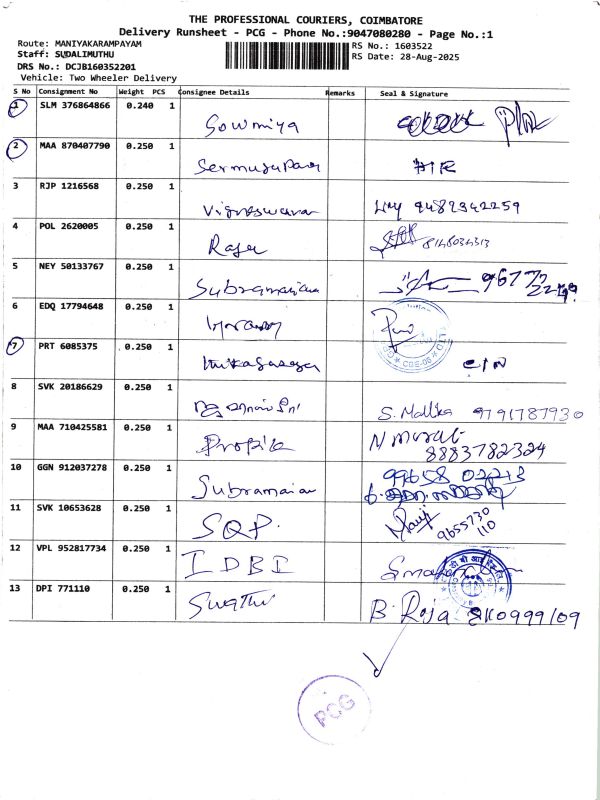 THE PROFESSIONAL COURIERS, COIMBATORE
Delivery Runsheet - PCG - Phone No.:9047080280 - Page No.:1
Route: MANIYAKARAMPAYAM
RS No.: 1603522
Staff: SUDALIMUTHU
RS Date: 28-Aug-2025
DRS No.: DCJB160352201
Vehicle: Two Wheeler Delivery
S No Consignment No Weight PCS Consignee Details Remarks Seal & Signature
1 SLM 376864866 0.240 1 Sowmiya
2 MAA 870407790 0.250 1
3 RJP 1216568 0.250 1 Vigneswaran 9489342259
4 POL 2620005 0.250 1 Raja
5 NEY 50133767 0.250 1 Subramaniam
6 EDQ 17794648 0.250 1
7 PRT 6085375 0.250 1
8 SVK 20186629 0.250 1 S. Mallika 9791787930
9 MAA 710425581 0.250 1 N murali
8883782324
10 GGN 912037278 0.250 1 Subramaian
11 SVK 10653628 0.250 1 SQP. 9655730
110
12 VPL 952817734 0.250 1 IDBI
13 DPI 771110 0.250 1 Swathi B. Raja
PCG